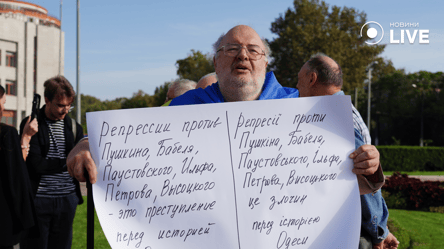 НОВИНИ
LIVE
Репрессии против
Пушкина, Бабеля,
Паустовского, Ильфа,
Петрова, Высоцкого
- это преступление
перед историей
Репресії проти
Пушкіна, Бабеля,
Паустовського, Ільфа,
Петрова, Висоцкого
це злочин
перед історією
Одеси